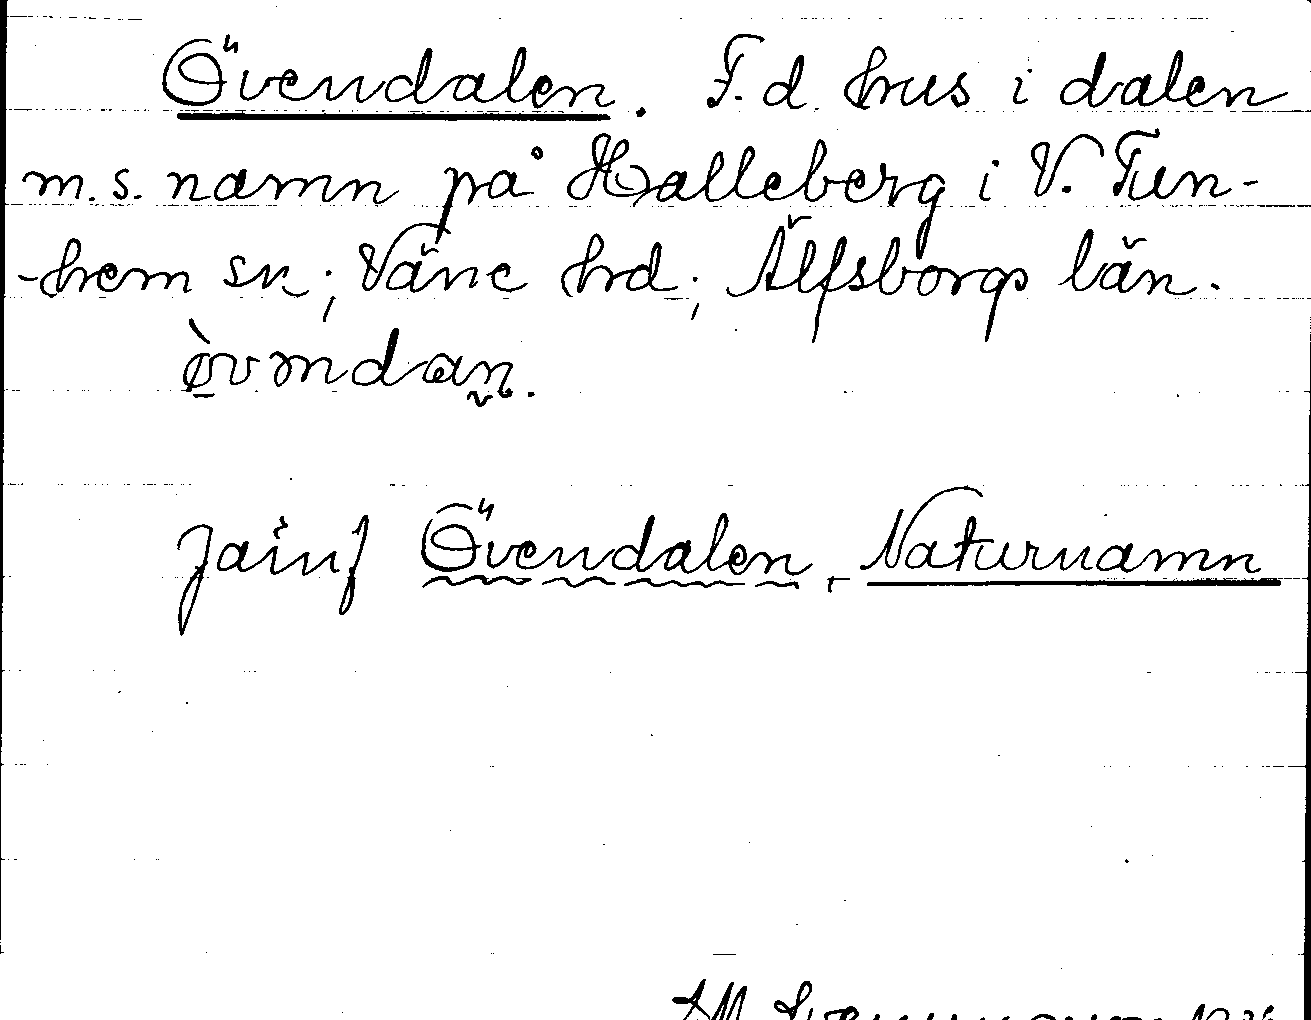 Övendalen. F.d. hus i dalen
m.s. namn på Halleberg i V. Tun-
-hem sn; Väne hrd; Älfsborgs län.
Jainf Övendalen, Naturnamn